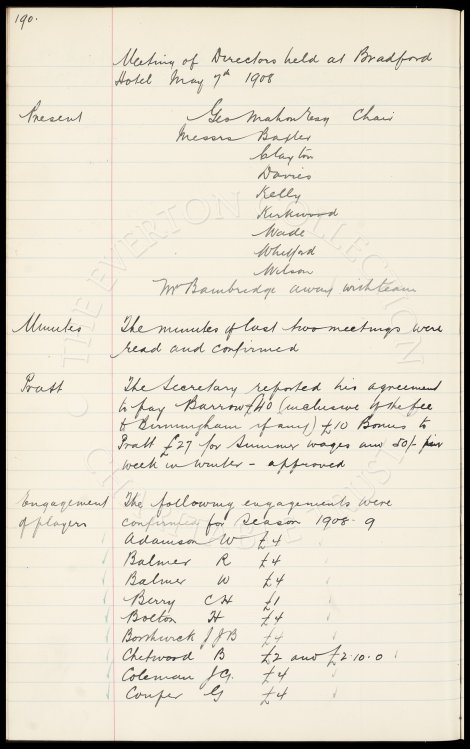 190.
Meeting of Directors held at Bradford
Hotel May 7th 1908
Present Geo Mahon Esq Chair
Messrs Baxter
Clayton
Davies
Kelly
Kirkwood
Wade
Whitford
Wilson
Mr Bainbridge away with team
Minutes The minutes of last two meetings were
read and confirmed
Pratt The Secretary reported his agreement
to pay Barrow £40 (inclusive of the fee
to Birmingham if any) £10 Bonus to
Pratt £27 for Summer wages and 50/- per
week in winter - approved
Engagement The following engagements were
of players confirmed for Season 1908-9
Adamson W £4
Balmer R £4
Balmer W £4
Berry CH £1
Bolton H £4
Borthwick J JB £4
Chetwood B £2 and £2.10.0
Coleman JG. £4
Couper G £4
THE EVERTON COLLECTION